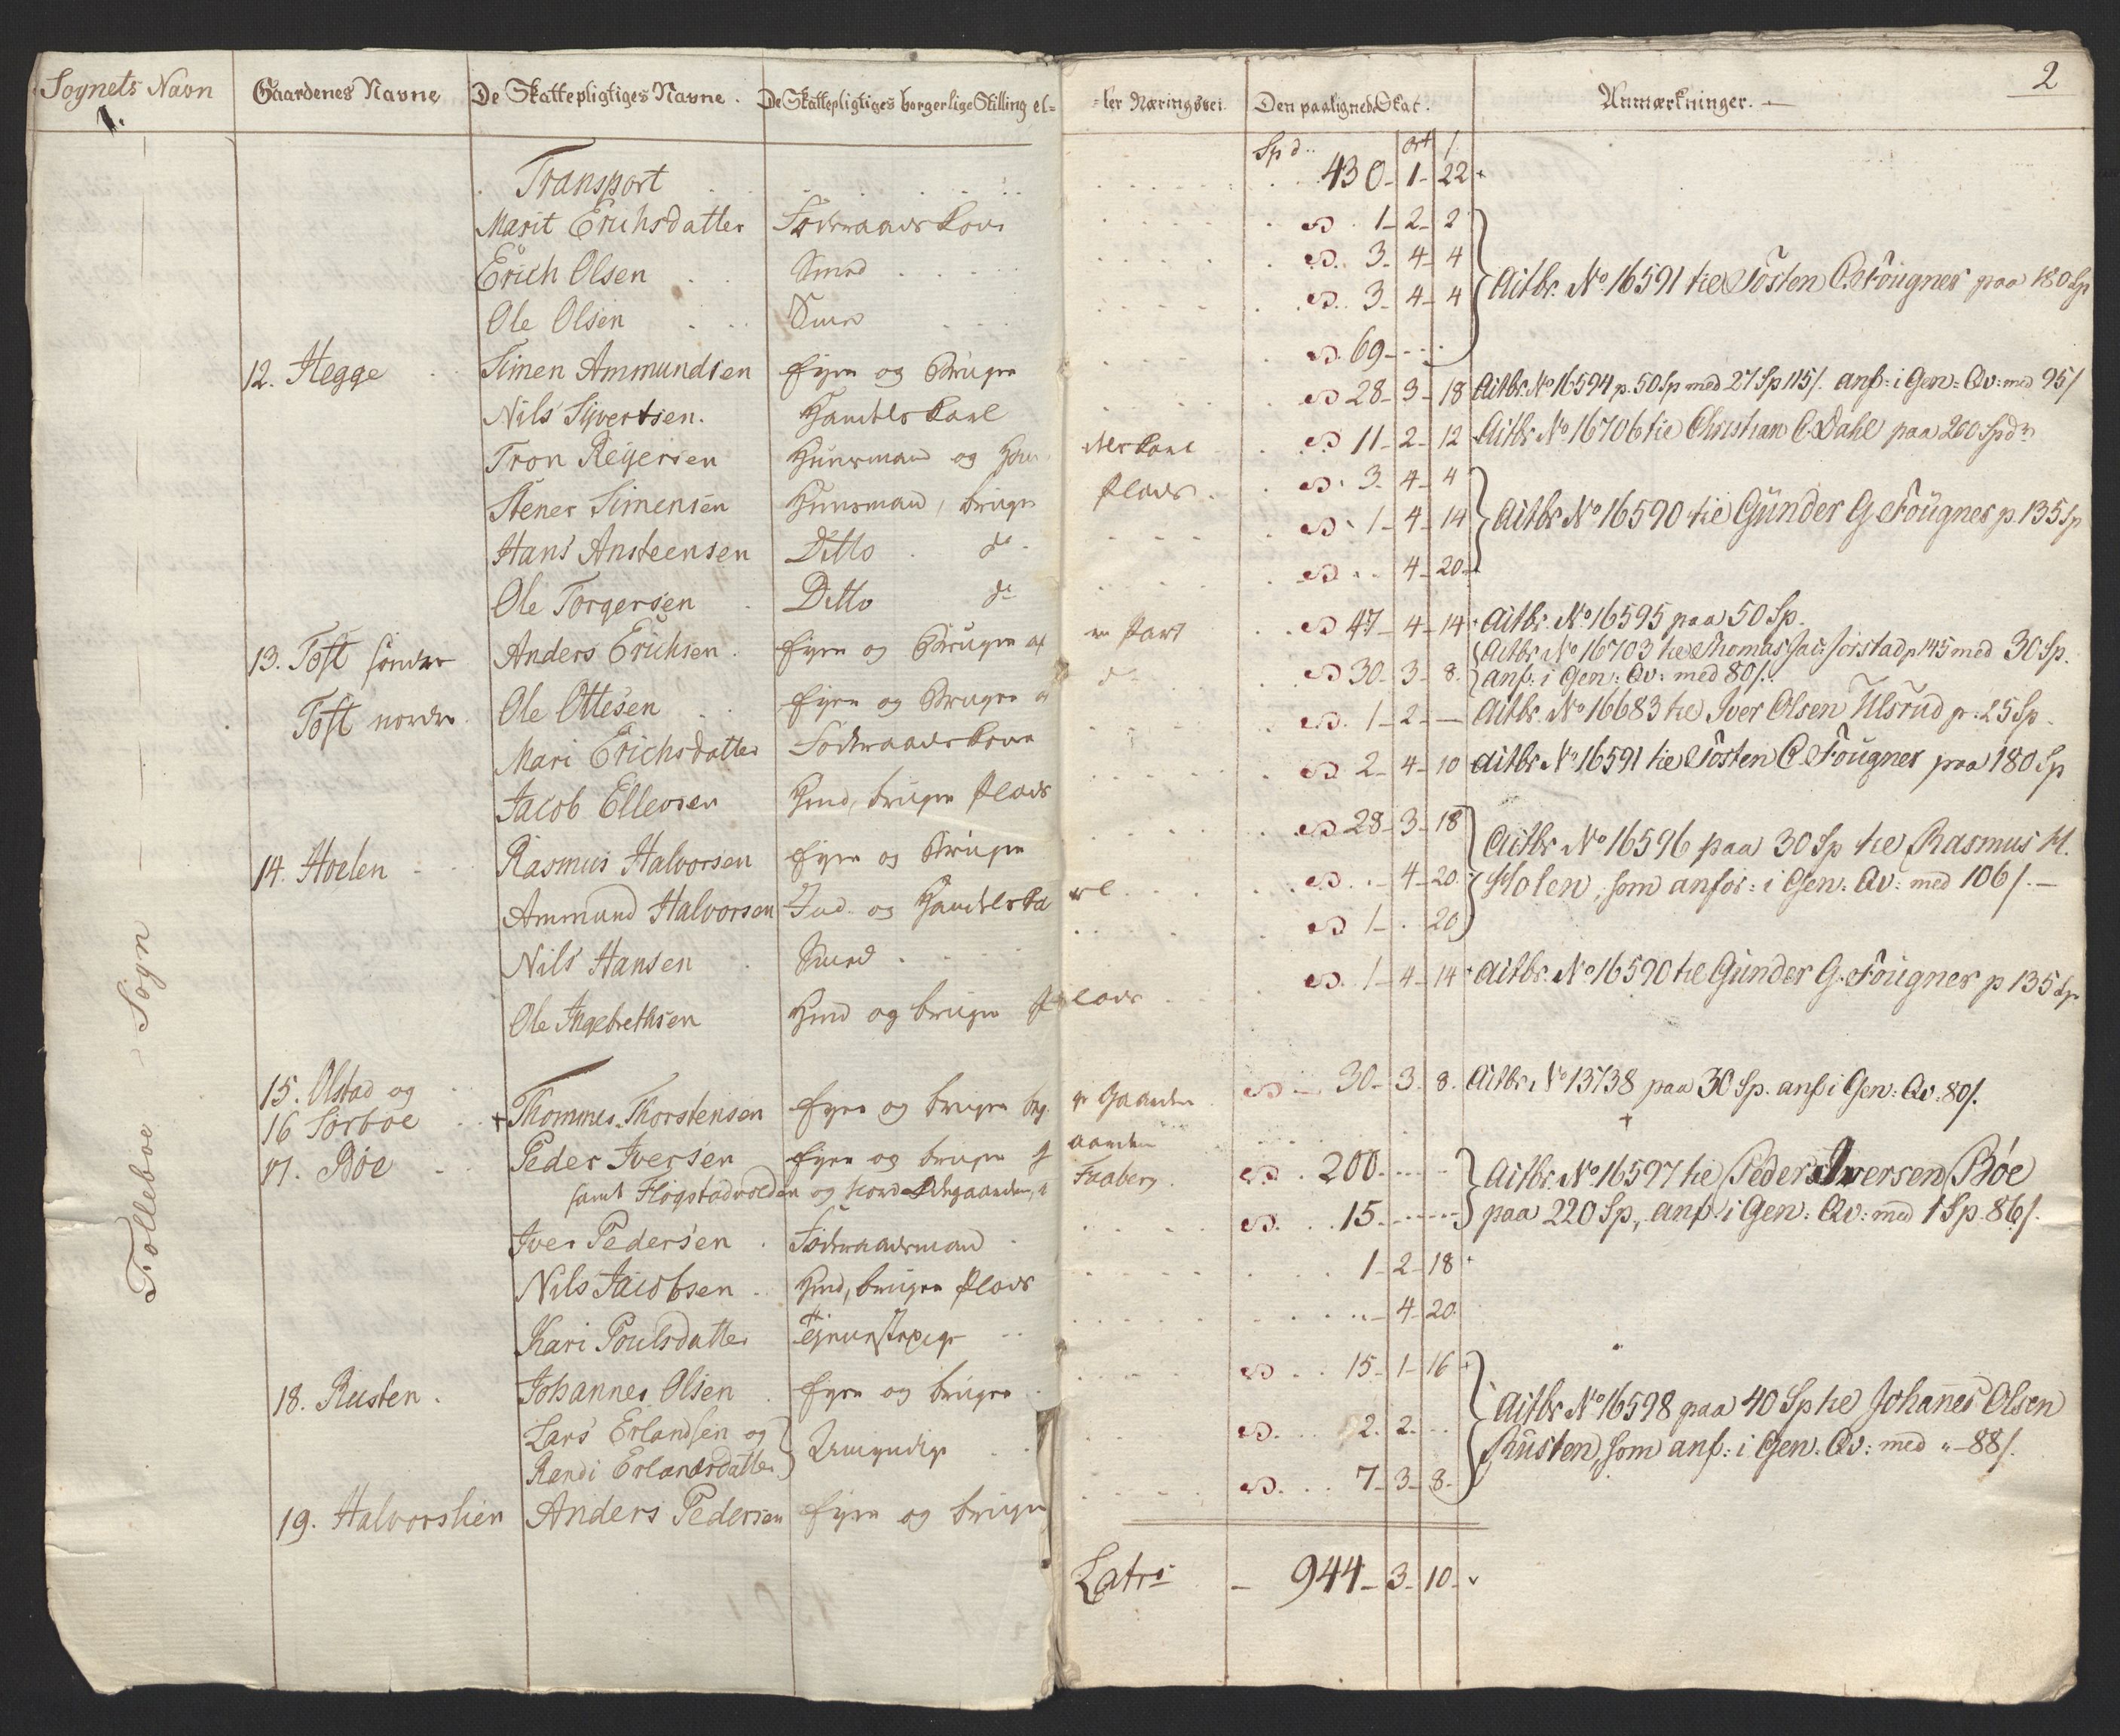 Sognets Navn | Gaardenes Navne | De Skattepligtiges Navne. | De Skattepligtiges borgerlige Stilling el= | =ler Næringsvei | Den paalignede Skat. | Anmærkninger. | 2
1.
Folleboe Sogn
Spd. | ort | /
Transport | 430 - 1 - 22
Marit Erichsdatter | Föderaadskone | 1 - 2 - 2
Erich Olsen | Smed | 3 - 4 - 4 | Aitbr. No. 16591 til Tosten C. Fougner paa 180 Sp
Ole Olsen | Smed | 3 - 4 - 4
12. Hegge | Simen Ammundsen | Eyer og Bruger | 69
Nils Sijvertsen. | Handelskarl | 28 - 3 - 18 | Aitbr. No 16594 p. 50 Sp med 27 Sp 115/. anf: i Gen: Qv: med 95/
Tron Reijersen | Huusmand og Handelskarl | 11 - 2 - 12 | Aitbr No 16706 til Christian C. Dahl paa 200 Spdr
Stener Simensen | Huusmand, bruger Plads | 3 - 4 - 4
Hans Ansteensen | Ditto do | 1 - 4 - 14 | Aitbr. No 16590 til Gunder G. Fougner p. 135 Sp
Ole Torgersen | Ditto do | 4 - 20
13. Toft söndre | Anders Erichsen | Eyer og Bruger af en Part | 47 - 4 - 14 | Aitbr. No 16595 paa 50 Sp.
Toft nordre | Ole Ottesen | Eyer og Bruger af do | 30 - 3 - 8 | Aitbr. No 16703 til Thomas Jac: Jorstad p 145 med 30 Sp.
anf: i Gen: Qv: med 80/.
Mari Erichsdatter | Föderaadskone | 1 - 2 - | Aitbr. No 16683 til Iver Olsen Ulsrud p. 25 Sp.
Jacob Ellevsen | Hmd, bruger Plads | 2 - 4 - 10 | Aitbr No 16591 til Tosten C. Fougner paa 180 Sp
14. Hoelen | Rasmus Halvorsen | Eyer og Bruger | 28 - 3 - 18 | Aitbr No 16596 paa 30 Sp til Rasmus H.
Ammund Halvorsen | Ind. og Handelskarl | 4 - 20 | Holen, som anfør: i Gen: Qv: med 106/.
Nils Hansen | Smed | 1 - . 20
Ole Ingebrethsen | Hmd og bruger Plads | 1 - 4 - 14 | Aitbr. No 16590 til Gunder G. Fougner p 135 Sp
15. Olstad og
16 Sörboe | + Thommes Thorstensen | Eyer og bruger begge Gaarder | 30 - 3 - 8. | Aitbr. No 13738 paa 30 Sp. anf i Gen: Qv: 80/.
17. Böe | Peder Iversen | Eyer og bruger Gaarden | 200 | Aitbr. No 16597 til Peder Iversen Böe
samt Flogstadvolden og Ødegaarden, i Faaberg.
Iver Pedersen | Föderaadsmand | 15 | paa 220 Sp, anf. i Gen: Qv: med 1 Sp. 86/.
Nils Jacobsen | Hmd, bruger Plads | 1 - 2 - 18
Kari Poulsdatter | Tjenestepige | 4 - 20
18. Rusten. | Johannes Olsen | Eyer og bruger | 15 - 1 - 16
Lars Erlandsen og
Randi Erlandsdatter | Umyndige | 2. 2. | Aitbr No 16598 paa 40 Sp til Johanes Olsen
19. Halvorslien | Anders Pedersen | Eyer og bruger | 7 - 3 - 8 | Rusten, som anf: i Gen: Qv: med " - 88/.
Latus - 944 - 3 - 10